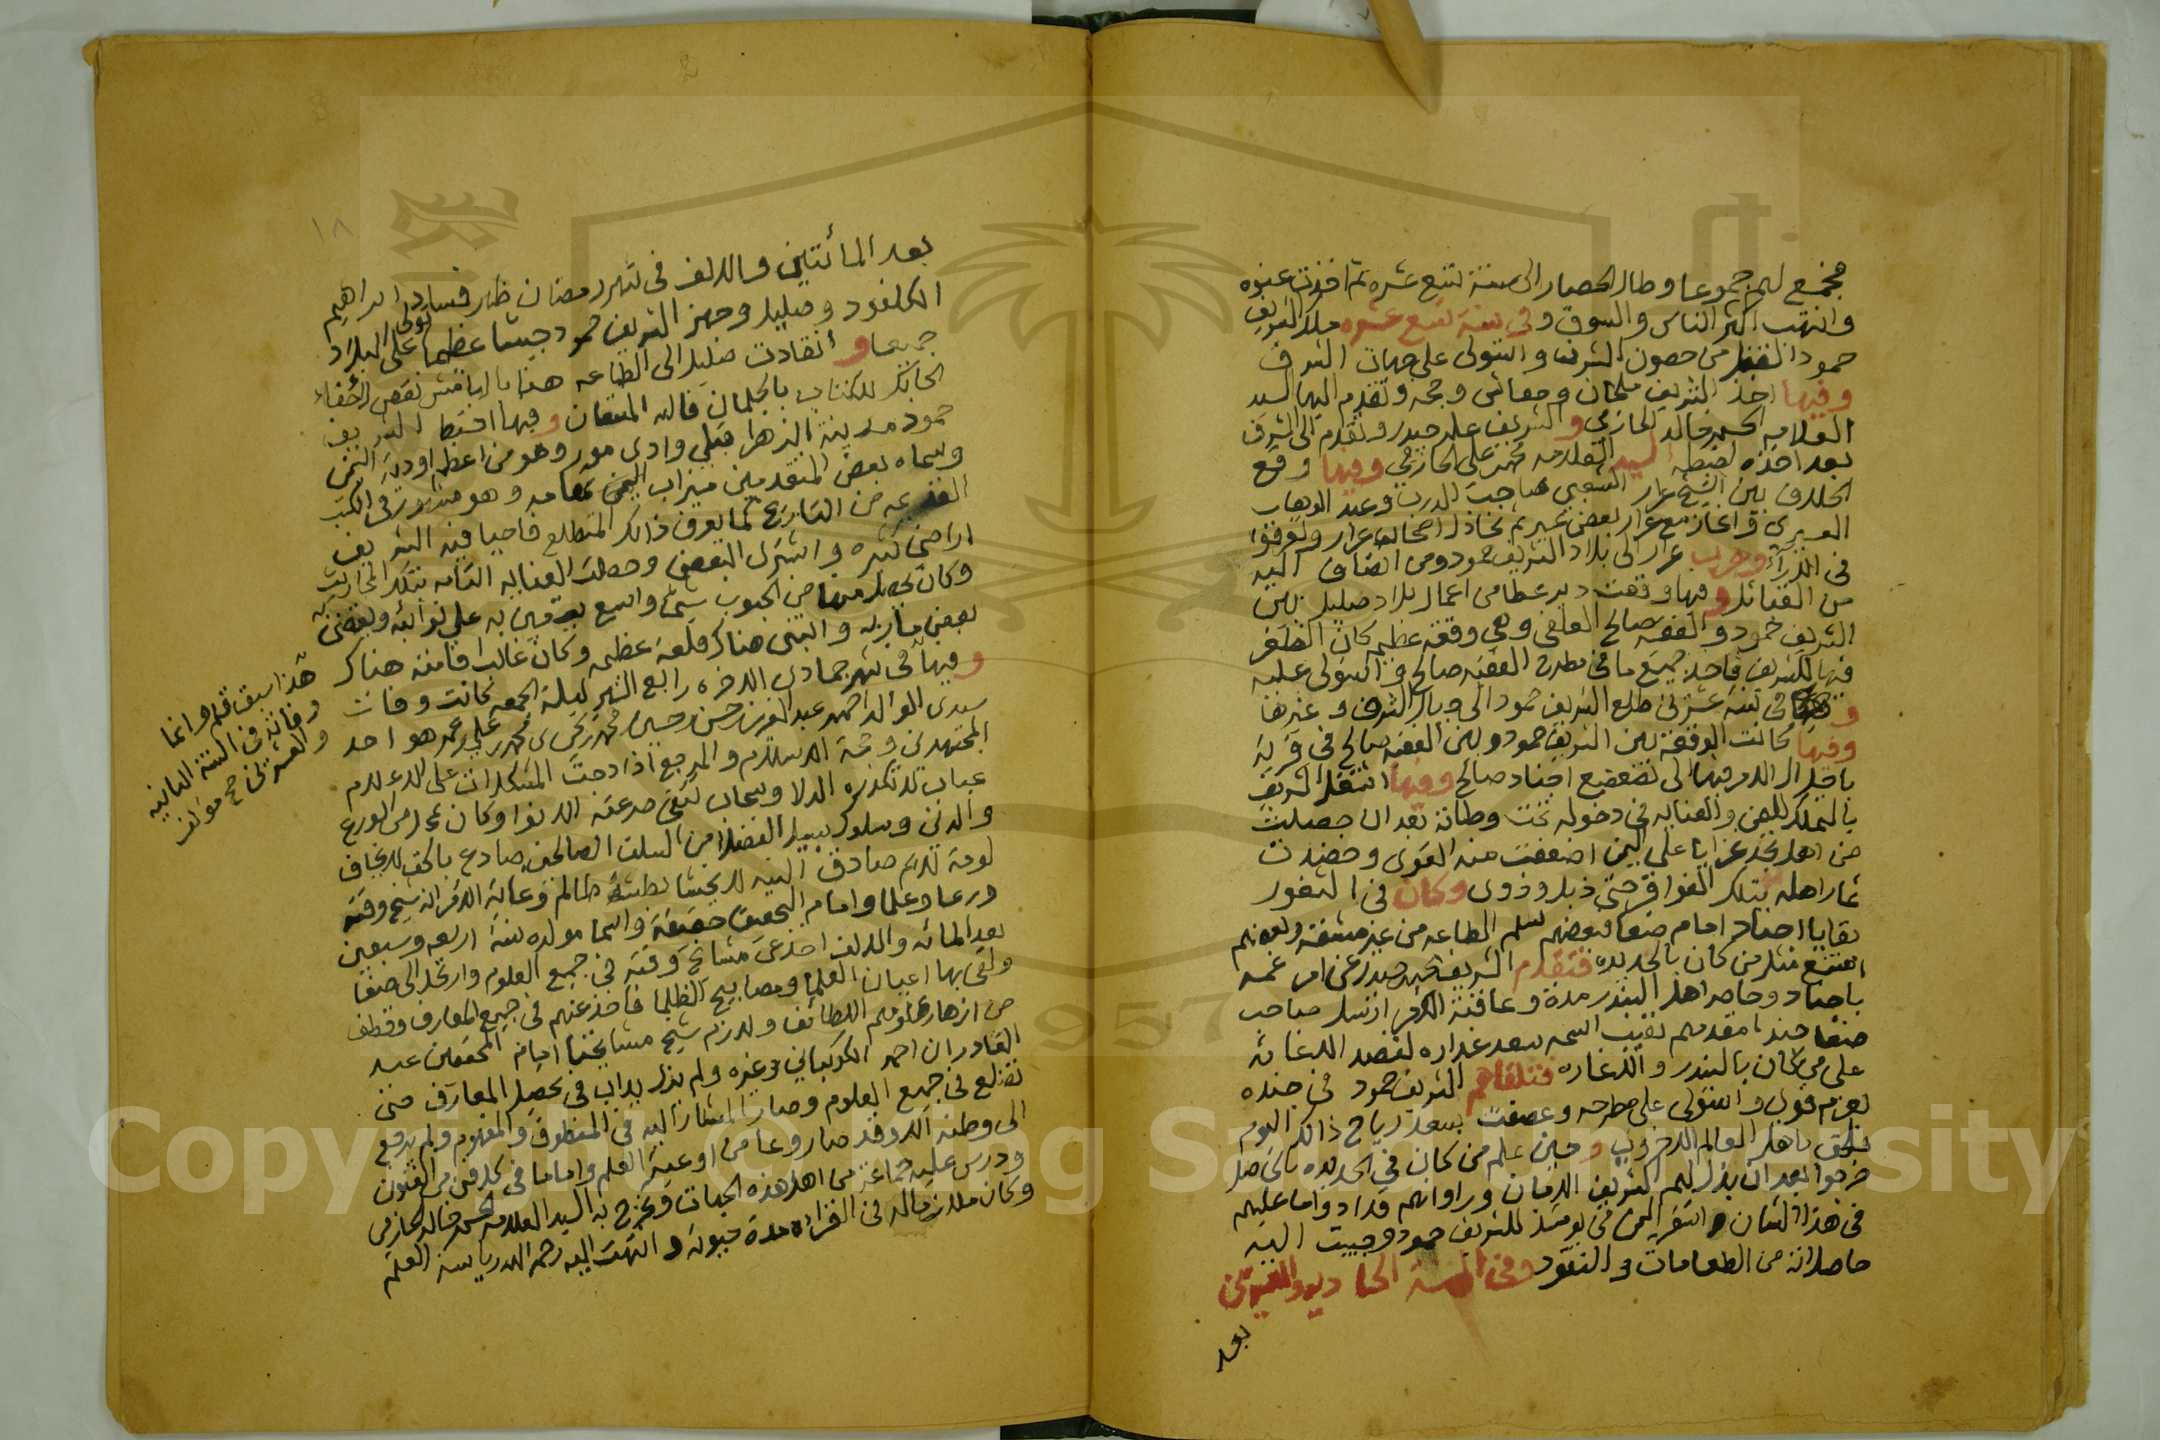 فجمع لهم جموعا وطال الحصار الى سنة تسع عشره ثم اخذت عنوه
وانتهب اكثر الناس والسوق وفي سنة تسع عشره ملك الشريف
حمود من حصون الشرف واستولى على جهات الشرف
وفيها اخذ الشريف ملحان وحفاش وحجه وتقدم اليها السيد
العلامه الحسن خالد الحازمي والشريف علي حيدر وتقدم الى الشرف
بعد اخذه لضبطه السيد العلامه محمد علي الحازمي وفيها وقع
الخلاف بين الشيخ عرار الشعبي صاحب الدرب وعبد الوهاب
العسيري واعان مع عرار بعض عسير ثم تخاذل اصحاب عرار وتفرقوا
في الآراء وهرب عرار الى بلاد الشريف حمود ومن انضاف اليه
من القبائل وفيها وقعت دير عطا من اعمال بلاد صليل بين
الشريف حمود والفقيه صالح العلفي وهي وقعة عظيمه كان الظفر
فيها للشريف فاخذ جميع ما في مطرح الفقيه صالح واستولى عليه
و في سنة عشرين طلع الشريف حمود الى بلاد الشرف وغيرها
وفيها كانت الوقعة بين الشريف حمود وبين الفقيه صالح في قرية
باجل آل الامر فيها الى تضعضع اجناد صالح وفيها استقل الشريف
بالتملك لليمن والعنايه في دخوله تحت وطاته بعد ان حصلت
من اهل نجد غزايا على اليمن اضعفت منه القوى وحصدت
ثمار اهله بتلك الفواقر حتى ذبل وذوى وكان في الثغور
بقايا اجناد امام صنعا فبعضهم سلم الطاعه من غير مشقة وبعضهم
امتنع مثل من كان بالحديده فتقدم الشريف يحيى حيدر عن امر عمه
باجناد وحاصر اهل البندر مدة وعاقبة الامر ارسل صاحب
صنعا جندا مقدمهم نقيب اسمه سعد غداره لقصد الاغاثه
على من كان بالبندر والاغاره فتلقاهم الشريف حمود في جنده
بعزم قوي واستولى على مطرحه وعصفت بسعد رياح ذالك اليوم
فلحق باهل العالم الاخروي وحين علم من كان في الحديده
خرجوا بعد ان بذل لهم الشريف الامان
في هذا الشان واستقر اليمن في يومئذ للشريف حمود وجبيت اليه
حاصلاته من الطعامات والنقود وفي السنة الحاديه والعشرين
بعد
١٨
بعد المائتين والالف في شهر رمضان ظهر فساد ابراهيم
الكلفود وصليل وجهز الشريف حمود جيشا عظيما تولى على البلاد
جميعا و انقادت صليل الى الطاعه هذا
الحاتك للكتاب بالجلمان قاله المتقان وفيها اختط الشريف
حمود مدينة الزهرا قبلي وادي مور وهو من اعظم اودية اليمن
وسماه بعض المتقدمين ميزاب اليمن وهو مذكور في الكتب
القديمه من التاريخ كما يعرف ذالك المتطلع فاحيا فيه الشريف
اراضي كثيره واشترى البعض وحصلت العنايه التامه بتلك المحارث
وكان يحصل منها من الحبوب شيئ واسع يستعين به على نوائبه وبعض
بعض مآربه وابتنى هناك قلعة عظيمه وكان غالب اقامته هناك
وفيها في شهر جمادى الاخره رابع الشهر ليلة الجمعه كانت وفات
سيدي الوالد احمد عبد العزيز حسن حسين محمد يحيى محمد علي عمر هو احد
المجتهدين وثقة الاسلام والمرجع اذا دجت المشكلات على الاعلام
عباب لا تكدره الدلا وسحاب تتقي صدعته الانوا وكان على جانب من الورع
والدين وسلوك سبيل الفضلا من السلف الصالحين صادع بالحق لا يخاف
لومة لائم صادق النيه لا يخشا بطشة ظالم وعالية الاقران شيخ وقته
ورعا وعلما وامام التحقيق حقيقة واسما مولده سنة اربعه وسبعين
بعد المائه والالف اخذ عن مشائخ وقته في جميع العلوم وارتحل الى صنعا
ولقي بها اعيان العلما ومصابيح الظلما فاخذ عنهم في جميع المعارف وقطف
من ازهار علومهم اللطائف ولازم شيخ مشايخنا امام المحققين عبد
القادر ابن احمد الكوكباني وغيره ولم يزل يداب في تحصيل المعارف حتى
تضلع في جميع العلوم وصار المشار اليه في المنطوق والمفهوم ولم يرجع
الى وطنه الا وقد صار وعا من اوعية العلم واماما في كل فن من الفنون
ودرس عليه جماعة من اهل هذه الجهات وتخرج به السيد العلامه الحسن خالد الحازمي
وكان ملازما له في القراءه مدة حيوته وانتهت اليه رحمه الله رياسة العلم
هذا سبق قلم وانما
وفاته في السنة الثانيه
والعشرين مؤلف